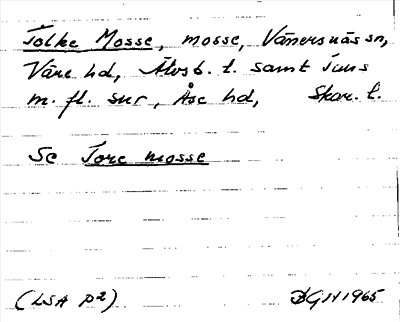 Tolke Mosse, mosse, Vänersnäs sn,
Väne hd, Älvsb. l. samt Tuns
m. fl. snr, Åse hd, Skar. l.
Se Tore mosse
(LSA P2) BGH 1965